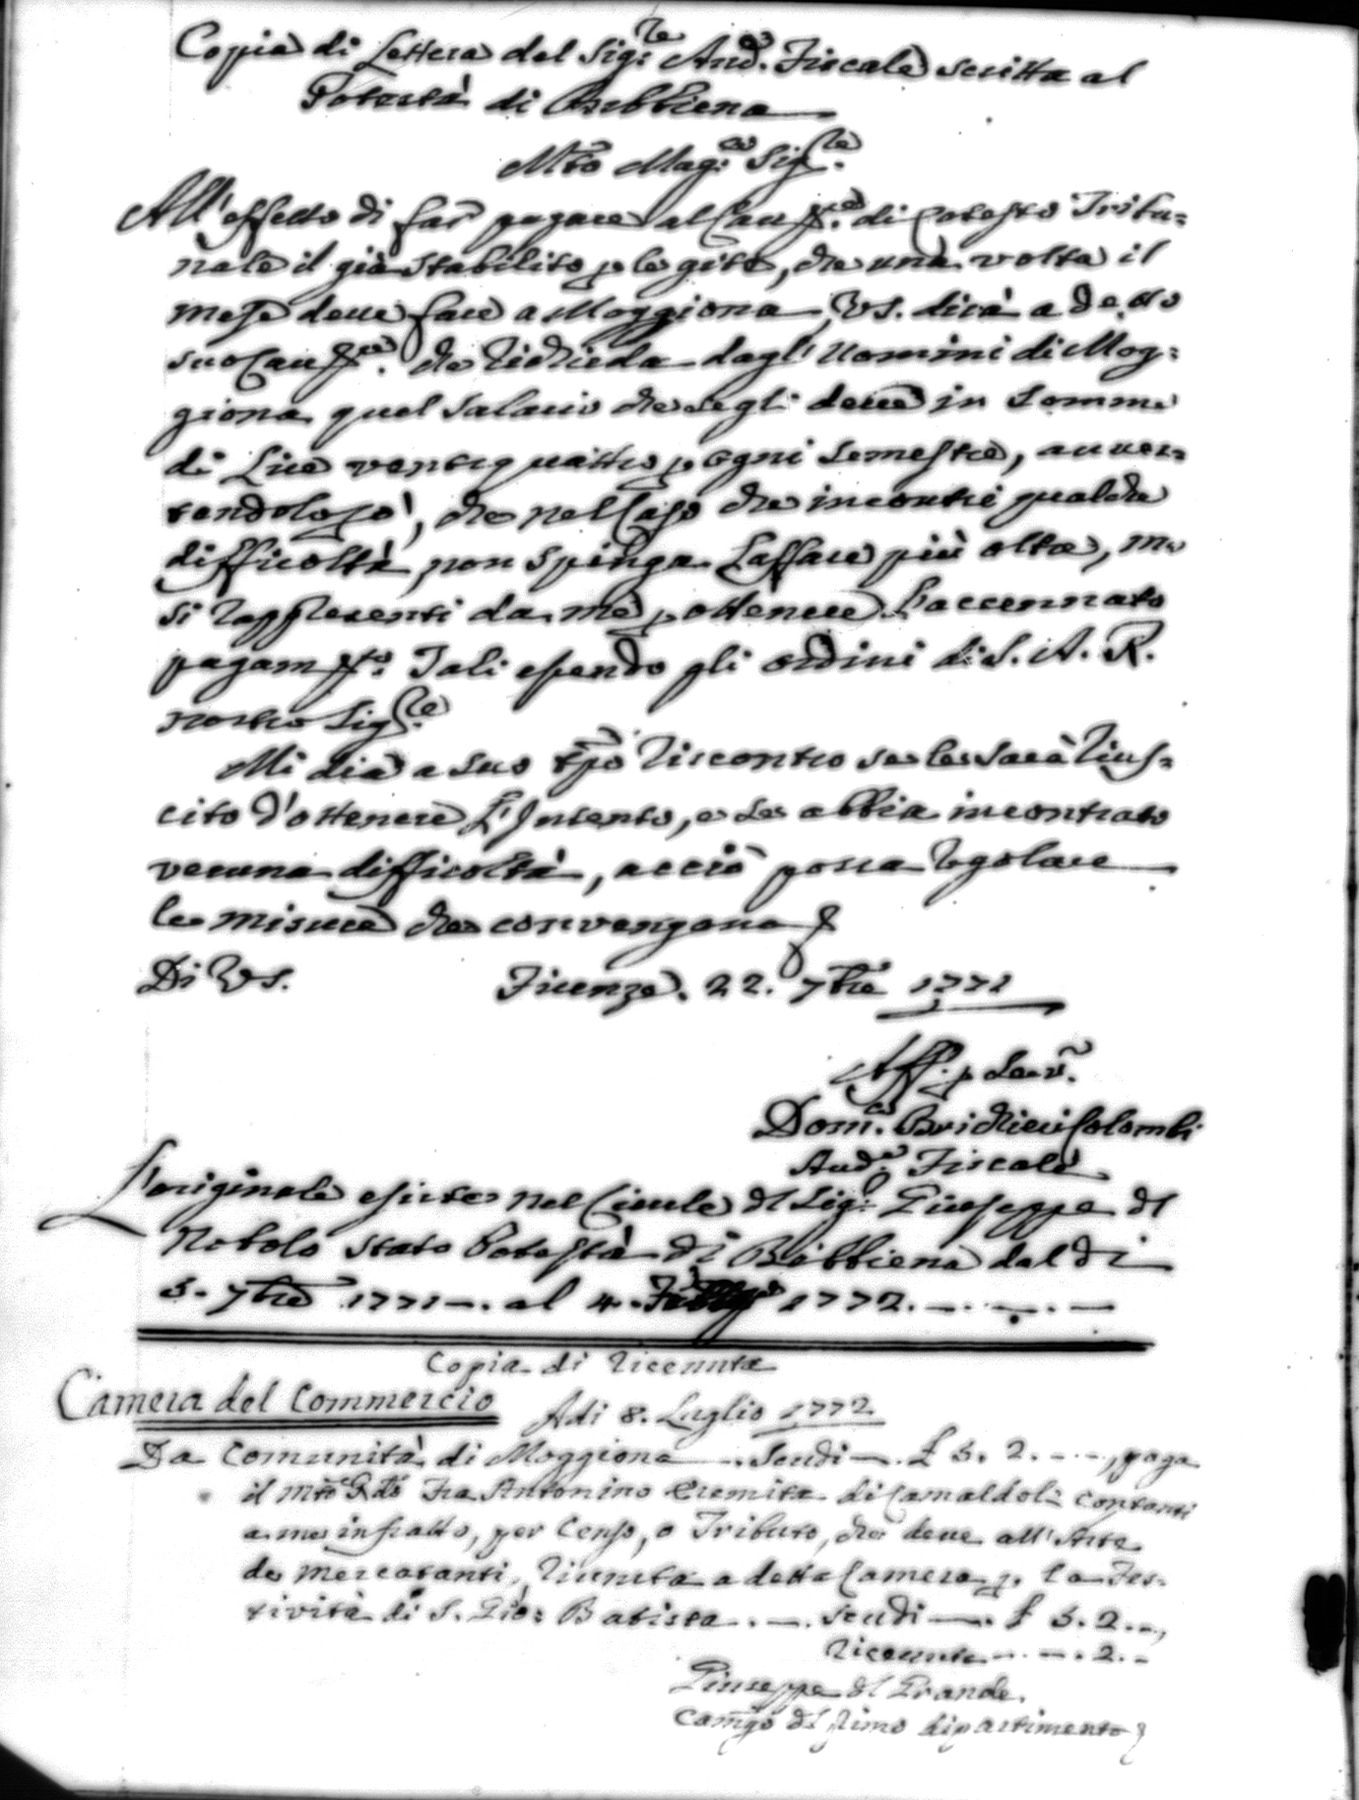 Copia di Lettera del Sig.re Aud.e Fiscale scritta al
Potestà di Bibbiena
Mto Mag.co Sig.re
All'effetto di far pagare al Cau.re di cotesto Tribu=
nale il già stabilito p le gite, che una volta il
mese deve fare a Moggiona, VS. dirà a detto
suo Cau.re che richieda dagl'Uomini di Mog=
giona quel salario che segli deve in somma
di Lire ventiquattro p ogni semestre, avver=
tendolo però, che nel Caso che incontri qualche
difficoltà, non spinga L'affare più oltre, ma
si rappresenti da me p ottenere l'accennato
pagam.to Tali essendo gli ordini di S. A. R.
nostro Sig.re
Mi dia a suo tpo riscontro se le sarà rius=
cito d'ottenere L'Intento, e se abbia incontrato
veruna difficoltà, acciò possa regolare
le misure che convengono
Di VS. Firenze. 22. 7bre 1771
Aff. p Ser.
Dom.co Brichieri Colombi
Aud.e Fiscale
L'originale esiste nel Civile dl Sig.r Giuseppe dl
Nobolo stato Potestà di Bibbiena dal di
5. 7bre 1771 -. al 4. 1772. -. -. -
Copia di ricevuta
Camera del Commercio Adi 8. Luglio 1772
Da Comunità di Moggiona -. Scudi -. £ 5. 2. - -, paga
il mto Rdo Fra Antonino Eremita di Camaldoli contanti
a me infratto, per Censo, o Tributo, che deve all'Arte
de Mercatanti, riunita a detta Camera p. la Fes=
tività di S. Gio: Batista. -. Scudi -. £ 5. 2. -,
ricevuta - - -. 2. -
Giuseppe dl Grande.
Camgo dl primo dipartimento